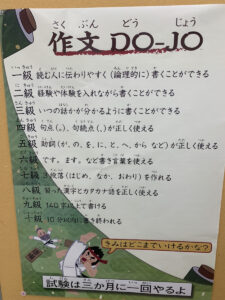 さくぶんどうじょう
作文DO-JO
一級 読む人に伝わりやすく(論理的に)書くことができる
二級 経験や体験を入れながら書くことができる
三級 いつの話かが分かるように書くことができる
四級 句点(。)、句読点(、)が正しく使える
五級 助詞(が、の、を、に、と、へ、から など)が正しく使える
六級 です。ます。など書き言葉を使える
七級 3段落(はじめ、なか、おわり)を作れる
八級 習った漢字とカタカナ語を正しく使える
九級 140字以上で書ける
十級 10分以内に書き終われる
きみはどこまでいけるかな?
試験は三か月に一回やるよ